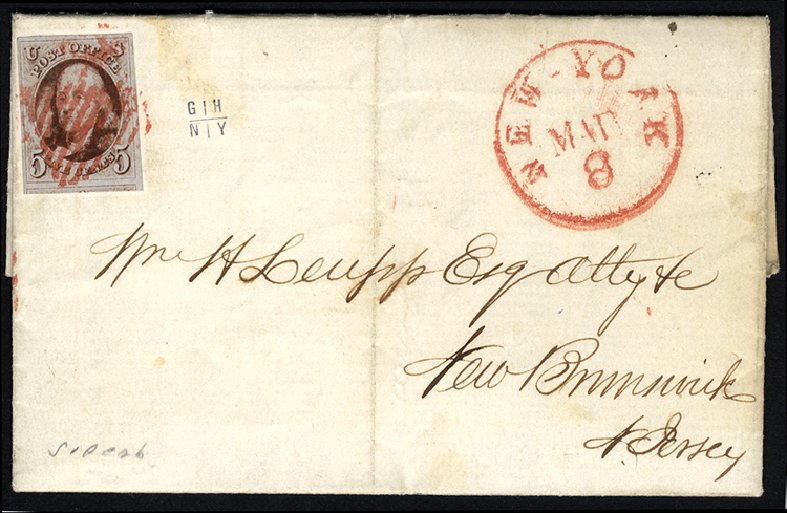 U S
POST OFFICE
5 5
G|H
N|Y
NEW-YORK
MAR
8
Wm H Leupp Esq Atty &c
New Brunswick
N. Jersey